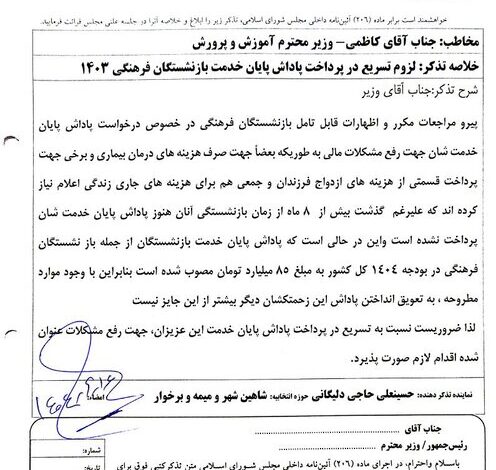 خواهشمند است برابر ماده (۲۰۶) آئین‌نامه داخلی مجلس شورای اسلامی، تذکر زیر را ابلاغ و خلاصه آنرا در جلسه علنی مجلس قرائت فرمایید.
مخاطب: جناب آقای کاظمی– وزیر محترم آموزش و پرورش
خلاصه تذکر: لزوم تسریع در پرداخت پاداش پایان خدمت بازنشستگان فرهنگی ۱۴۰۳
شرح تذکر:جناب آقای وزیر
پیرو مراجعات مکرر و اظهارات قابل تامل بازنشستگان فرهنگی در خصوص درخواست پاداش پایان
خدمت شان جهت رفع مشکلات مالی به طوریکه بعضاً جهت صرف هزینه های درمان بیماری و برخی جهت
پرداخت قسمتی از هزینه های ازدواج فرزندان و جمعی هم برای هزینه های جاری زندگی اعلام نیاز
کرده اند که علیرغم گذشت بیش از ۸ ماه از زمان بازنشستگی آنان هنوز پاداش پایان خدمت شان
پرداخت نشده است واین در حالی است که پاداش پایان خدمت بازنشستگان از جمله باز نشستگان
فرهنگی در بودجه ۱۴۰۴ کل کشور به مبلغ ۸۵ میلیارد تومان مصوب شده است بنابراین با وجود موارد
مطروحه ، به تعویق انداختن پاداش این زحمتکشان دیگر بیشتر از این جایز نیست
لذا ضروریست نسبت به تسریع در پرداخت پاداش پایان خدمت این عزیزان، جهت رفع مشکلات عنوان
شده اقدام لازم صورت پذیرد.
نماینده تذکر دهنده: حسینعلی حاجی دلیگانی حوزه انتخابیه: شاهین شهر و میمه و برخوار امضاء:
جناب آقای
رئیس‌جمهور/ وزیر محترم
شماره:
باسلام واحترام، در اجرای ماده (۲۰۶) آئین‌نامه داخلی مجلس شورای اسلامی متن تذکر کتبی فوق برای
تاریخ: